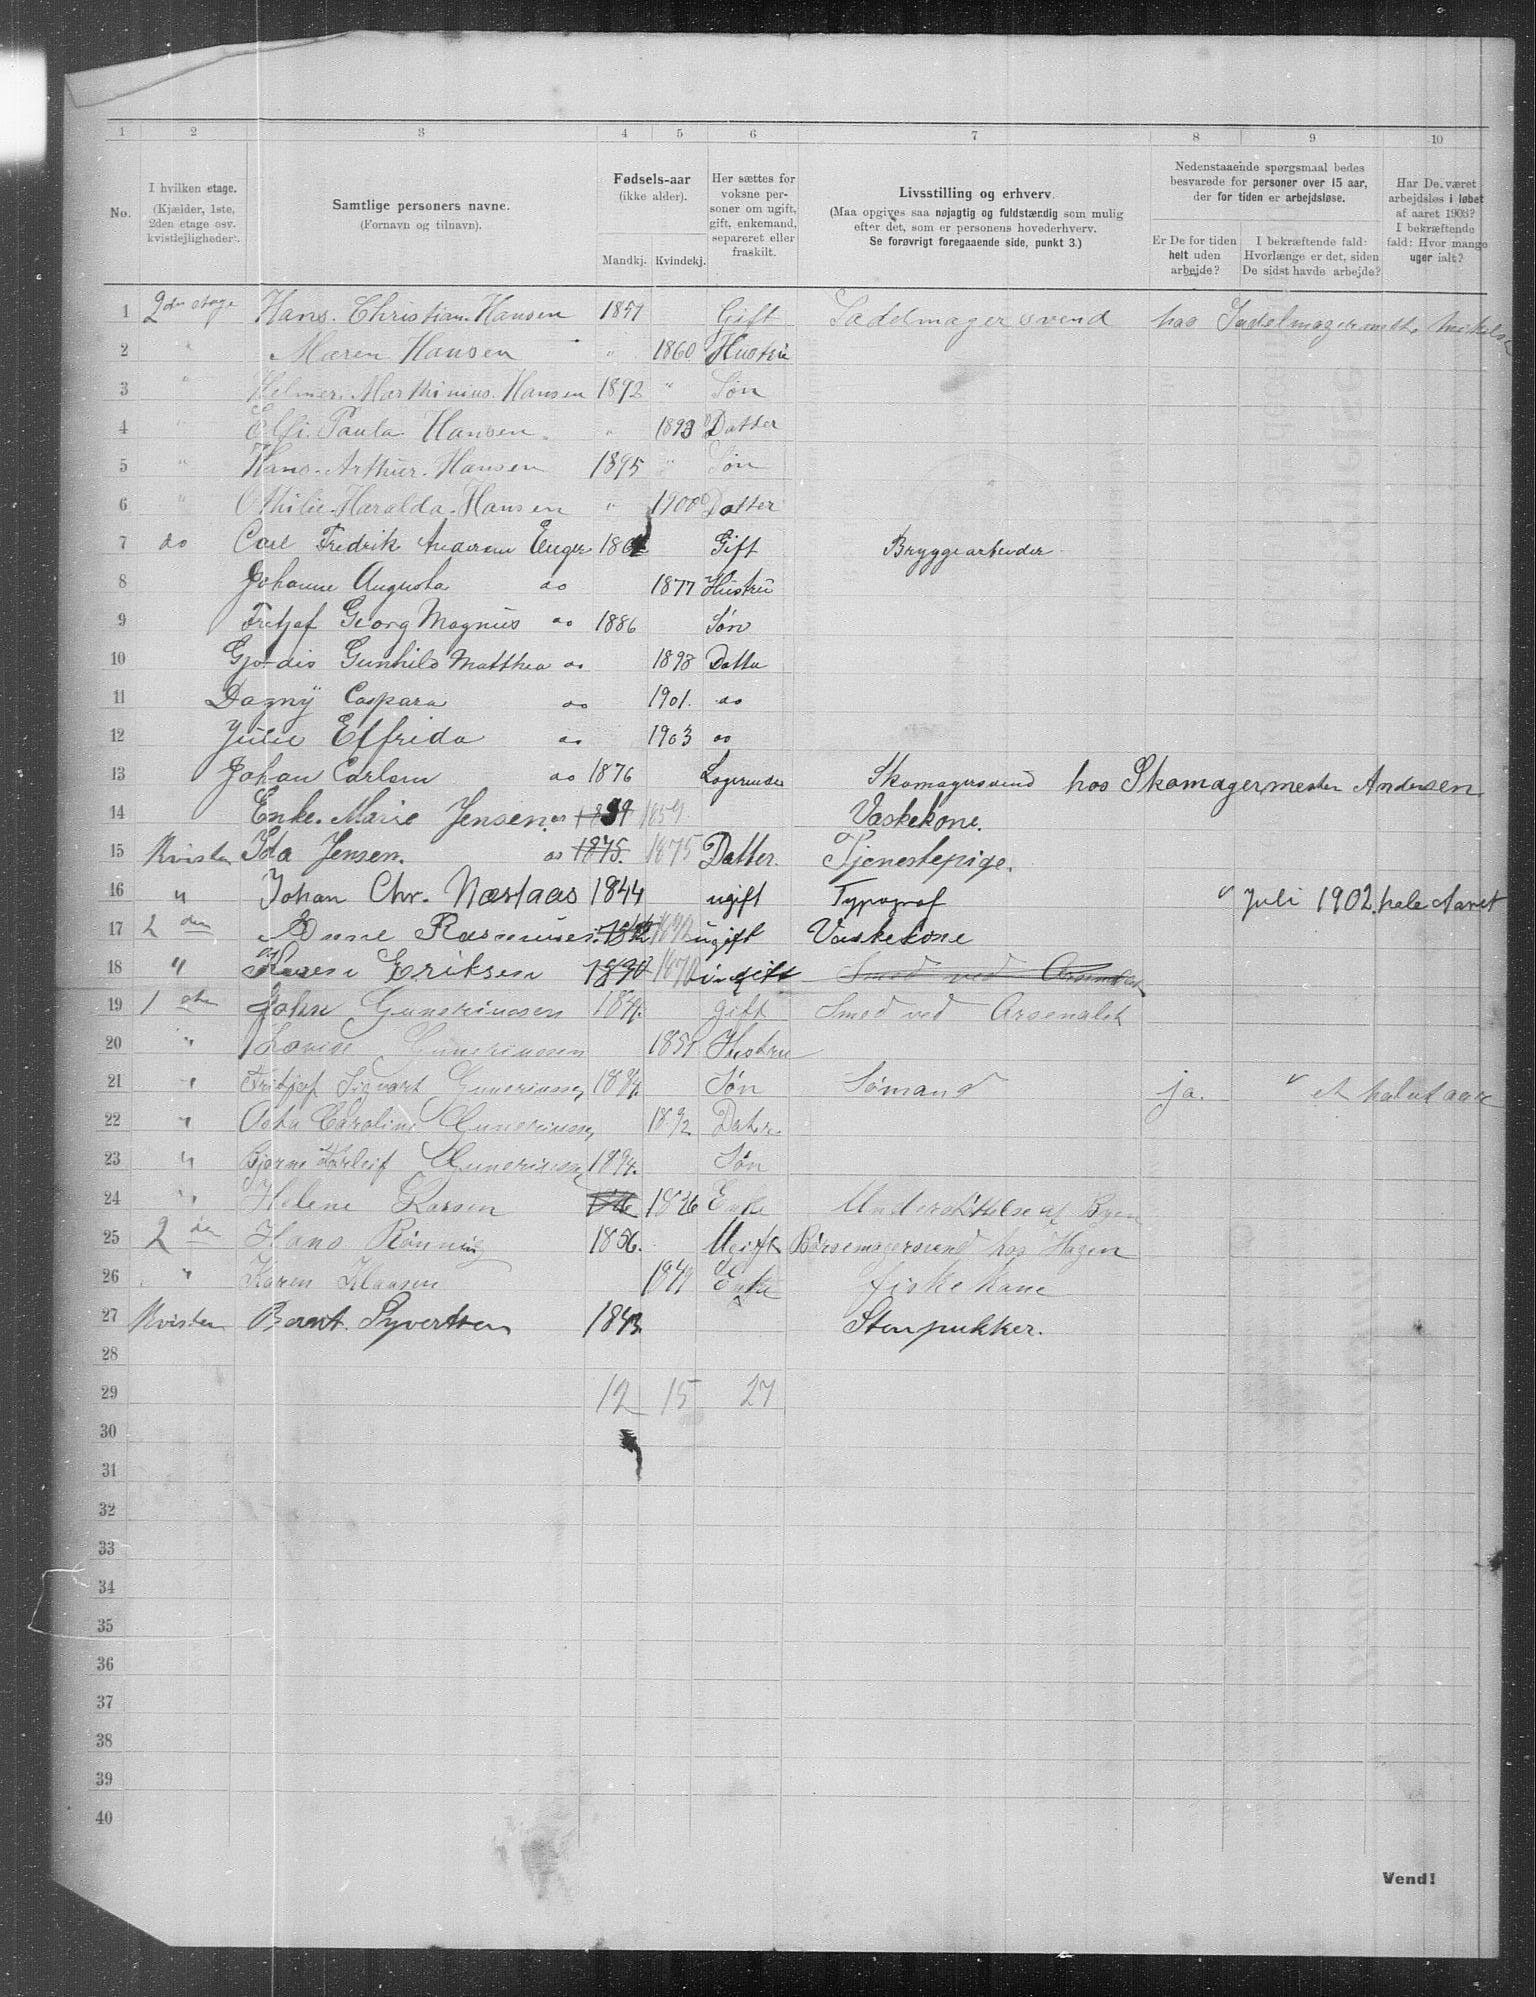 1 2 3 4 5 6 7 8 9 10
No.
I hvilken etage.
(Kjælder, 1ste,
2den etage osv.
kvistlejligheder).
Samtlige personers navne.
(Fornavn og tilnavn).
Fødsels-aar
(ikke alder).
Mandkj. Kvindekj.
Her sættes for
voksne per-
soner om ugift,
gift, enkemand,
separeret eller
fraskilt.
Livsstilling og erhverv.
(Maa opgives saa nøjagtig og fuldstændig som mulig
efter det, som er personens hovederhverv.
Se forøvrigt foregaaende side, punkt 3.)
Nedenstaaende spørgsmaal bedes
besvarede for personer over 15 aar,
der for tiden er arbejdsløse.
Er De for tiden
helt uden
arbejde?
I bekræftende fald:
Hvorlænge er det, siden
De sidst havde arbejde?
Har De været
arbejdsløs i løbet
af aaret 1903?
I bekræftende
fald: Hvor mange
uger ialt?
1 2den etage Hans. Christian. Hansen 1851 Gift Sadelmagersvend hos Sadelmagermest.
2 " Maren Hansen " 1860 Hustru
3 " Helmer. Marthinius. Hansen 1892 " Søn
4 " Elfi. Paula. Hansen. " 1893 Datter
5 " Hans. Arthur. Hansen 1895 " Søn
6 " Othilie. Haralda. Hansen " 1900 Datter
7 do Carl Fredrik Andersen Enger Gift Bryggearbeider
8 Johanne Augusta do 1877 Hustru
9 Fritjof Georg Magnus do 1886 Søn
10 Gjordis Gunhild Matthea do 1898 Datter
11 Dagny Caspara do 1901. do
12 Julie Elfrida do 1903 do
13 Johan Carlsen do 1876 Logerende Skomagersvend hos Skomagermester Andersen
14 Enke. Marie Jensen. do 1859 1859. Vaskekone.
15 Kvisten Ida Jensen. do 1875. 1875 Datter. Tjenestepige.
16 " Johan Chr. Næstaas 1844 ugift Typograf Juli 1902. hele Aaret
17 2den Anne Rasmusen. 1842 ugift Vaskekone
18 " Karen Eriksen 1890 1870 ugift Smed ved Arsenalet
19 1ste John Gundersen gift Smed ved Arsenalet
20 " Lovise Gundersen 1851 Hustru
21 " Fritjof Sigvart Gundersen 1884. Søn Sømand ja. et halvt aar
22 " Asta Caroline Gundersen 1892 Dater.
23 " Bjarne Thorleif Gundersen 1894. Søn
24 " Helene Larsen 1826 Enke Understøttelse af Byen
25 2den Hans Rønning 1856. Ugift Børsemagersvend hos Hagen
26 " Karen Klausen 1849 Enke fiskekone
27 Kvisten Bernt. Syvertsen 1843. Stenpukker.
28
29 12 15 27
30
31
32
33
34
35
36
37
38
39
40
Vend!